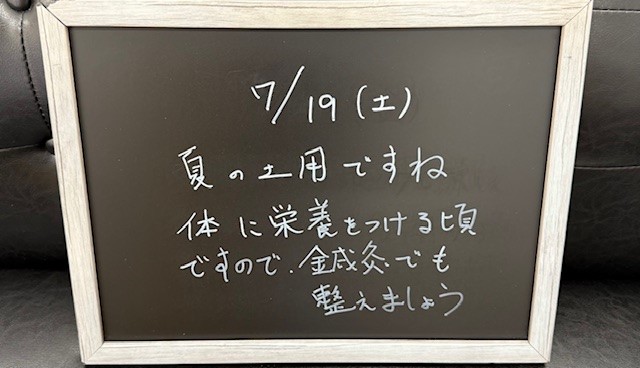 7/19(土)
夏の土用ですね
体に栄養をつける頃
ですので、鍼灸でも
整えましょう